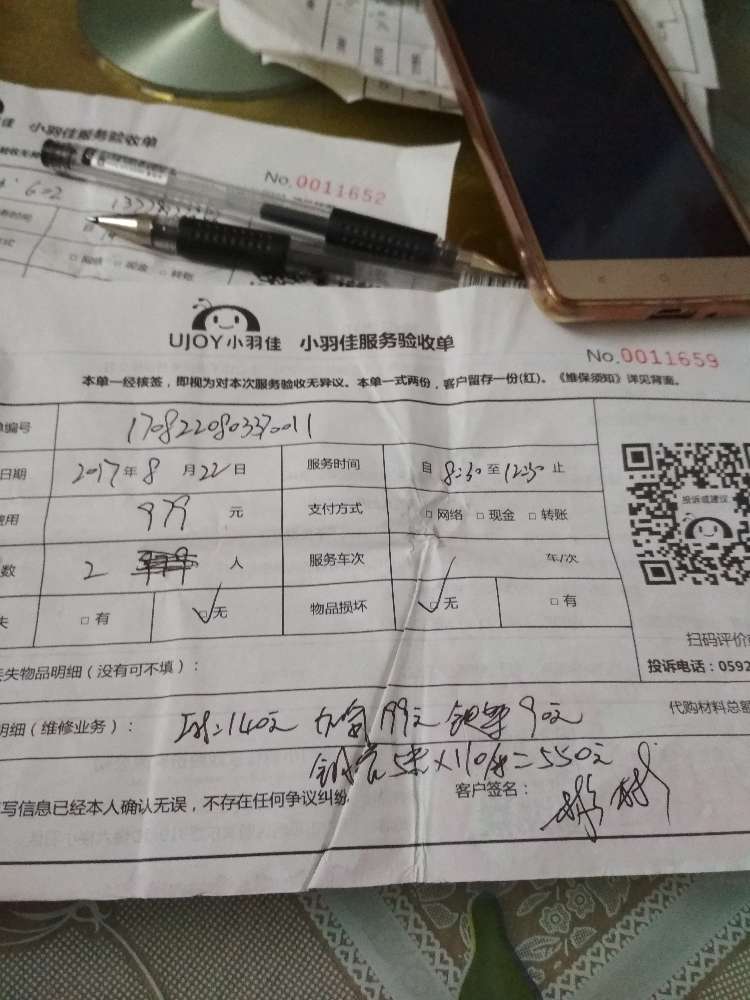 佳 小羽佳服务验收单
No.0011652
602
□ 现金 □ 转账
UJOY小羽佳 小羽佳服务验收单
No.0011659
本单一经核签，即视为对本次服务验收无异议。本单一式两份，客户留存一份(红)。《维保须知》详见背面。
单编号 1708220803370011
日期 2017年8月22日 服务时间 自 8:30至12:30止
费用 979 元 支付方式 □ 网络 □ 现金 □ 转账
数 2 人 服务车次 车/次
失 □ 有 □ 无 物品损坏 □ 无 □ 有
投诉或建议
扫码评价
投诉电话：0592
丢失物品明细（没有可不填）：
明细（维修业务）： 140元 加氟199元 90元
代购材料总额
铜管5米×110/米=550元
写信息已经本人确认无误，不存在任何争议纠纷
客户签名：